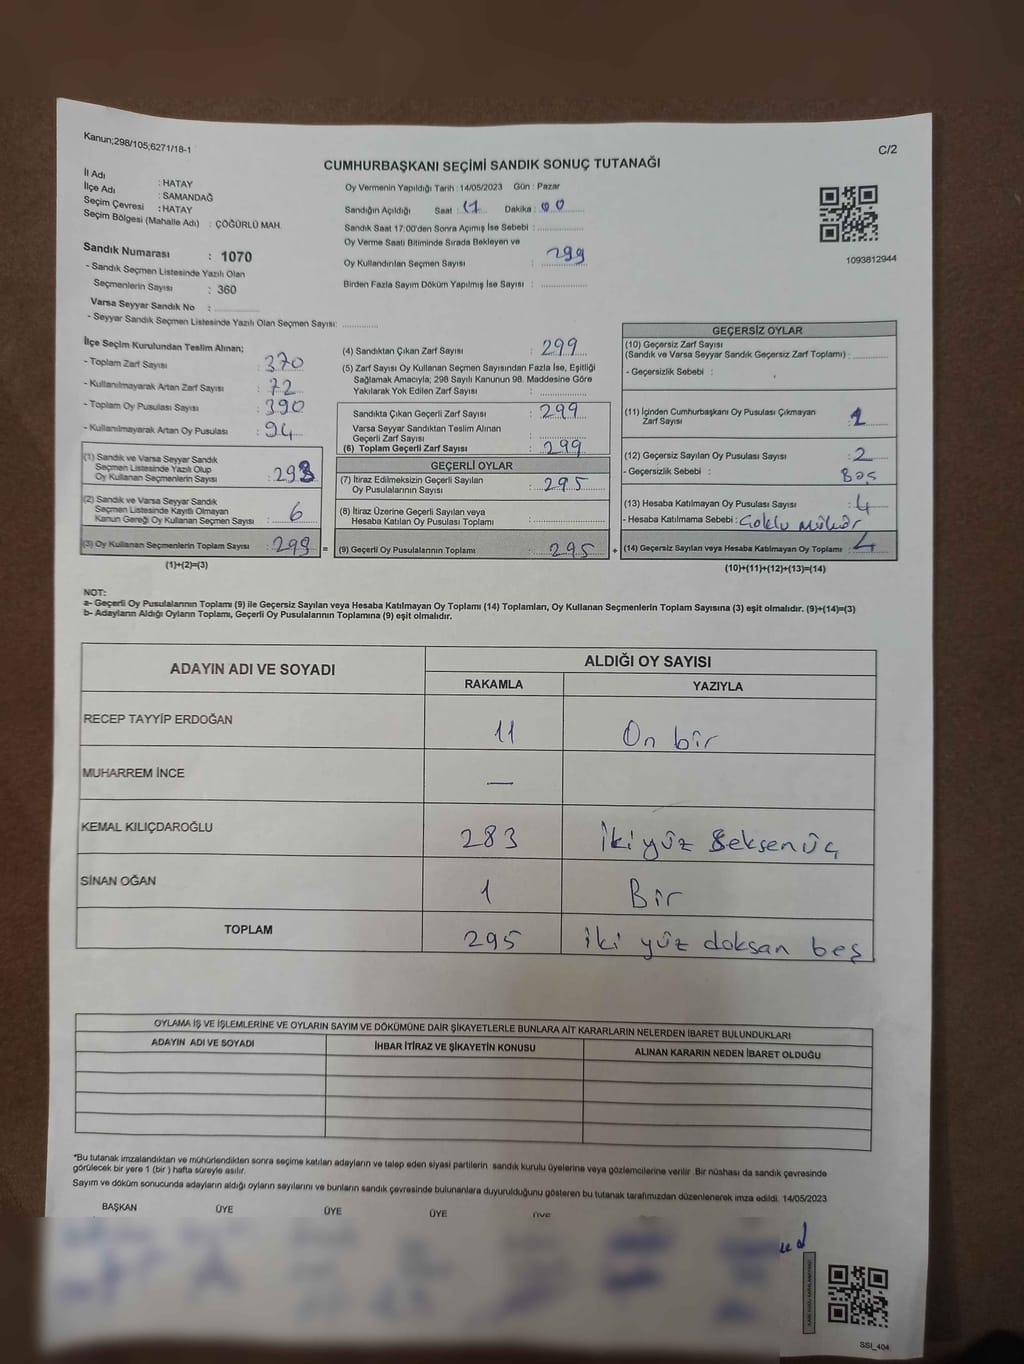 Kanun;298/105;6271/18-1
C/2
CUMHURBAŞKANI SEÇİMİ SANDIK SONUÇ TUTANAĞI
İl Adı : HATAY
İlçe Adı : SAMANDAĞ
Seçim Çevresi : HATAY
Seçim Bölgesi (Mahalle Adı) : ÇÖĞÜRLÜ MAH.
Sandık Numarası : 1070
- Sandık Seçmen Listesinde Yazılı Olan
Seçmenlerin Sayısı : 360
Varsa Seyyar Sandık No :
- Seyyar Sandık Seçmen Listesinde Yazılı Olan Seçmen Sayısı:
Oy Vermenin Yapıldığı Tarih : 14/05/2023 Gün : Pazar
Sandığın Açıldığı Saat : 17 Dakika : 00
Sandık Saat 17:00'den Sonra Açımış İse Sebebi :
Oy Verme Saati Bitiminde Sırada Bekleyen ve
Oy Kullandırılan Seçmen Sayısı : 299
Birden Fazla Sayım Döküm Yapılmış İse Sayısı :
1093812944
İlçe Seçim Kurulundan Teslim Alınan;
- Toplam Zarf Sayısı : 370
- Kullanılmayarak Artan Zarf Sayısı : 72
- Toplam Oy Pusulası Sayısı : 390
- Kullanılmayarak Artan Oy Pusulası : 94
(1) Sandık ve Varsa Seyyar Sandık
Seçmen Listesinde Yazılı Olup
Oy Kullanan Seçmenlerin Sayısı : 293
(2) Sandık ve Varsa Seyyar Sandık
Seçmen Listesinde Kayıtlı Olmayan
Kanun Gereği Oy Kullanan Seçmen Sayısı : 6
(3) Oy Kullanan Seçmenlerin Toplam Sayısı : 299 =
(1)+(2)=(3)
(4) Sandıktan Çıkan Zarf Sayısı : 299
(5) Zarf Sayısı Oy Kullanan Seçmen Sayısından Fazla İse, Eşitliği
Sağlamak Amacıyla; 298 Sayılı Kanunun 98. Maddesine Göre
Yakılarak Yok Edilen Zarf Sayısı :
Sandıkta Çıkan Geçerli Zarf Sayısı : 299
Varsa Seyyar Sandıktan Teslim Alınan
Geçerli Zarf Sayısı :
(6) Toplam Geçerli Zarf Sayısı : 299
GEÇERLİ OYLAR
(7) İtiraz Edilmeksizin Geçerli Sayılan
Oy Pusulalarının Sayısı : 295
(8) İtiraz Üzerine Geçerli Sayılan veya
Hesaba Katılan Oy Pusulası Toplamı :
(9) Geçerli Oy Pusulalarının Toplamı : 295 +
GEÇERSİZ OYLAR
(10) Geçersiz Zarf Sayısı
(Sandık ve Varsa Seyyar Sandık Geçersiz Zarf Toplamı) :
- Geçersizlik Sebebi :
(11) İçinden Cumhurbaşkanı Oy Pusulası Çıkmayan
Zarf Sayısı :
(12) Geçersiz Sayılan Oy Pusulası Sayısı : 2
- Geçersizlik Sebebi : Boş
(13) Hesaba Katılmayan Oy Pusulası Sayısı : 4
- Hesaba Katılmama Sebebi : Çoklu mühür
(14) Geçersiz Sayılan veya Hesaba Katılmayan Oy Toplamı : 4
(10)+(11)+(12)+(13)=(14)
NOT:
a- Geçerli Oy Pusulalarının Toplamı (9) ile Geçersiz Sayılan veya Hesaba Katılmayan Oy Toplamı (14) Toplamları, Oy Kullanan Seçmenlerin Toplam Sayısına (3) eşit olmalıdır. (9)+(14)=(3)
b- Adayların Aldığı Oyların Toplamı, Geçerli Oy Pusulalarının Toplamına (9) eşit olmalıdır.
ADAYIN ADI VE SOYADI
ALDIĞI OY SAYISI
RAKAMLA YAZIYLA
RECEP TAYYİP ERDOĞAN 11 On bir
MUHARREM İNCE —
KEMAL KILIÇDAROĞLU 283 İki yüz Seksen üç
SİNAN OĞAN 1 Bir
TOPLAM 295 iki yüz doksan beş
OYLAMA İŞ VE İŞLEMLERİNE VE OYLARIN SAYIM VE DÖKÜMÜNE DAİR ŞİKAYETLERLE BUNLARA AİT KARARLARIN NELERDEN İBARET BULUNDUKLARI
ADAYIN ADI VE SOYADI İHBAR İTİRAZ VE ŞİKAYETİN KONUSU ALINAN KARARIN NEDEN İBARET OLDUĞU
*Bu tutanak imzalandıktan ve mühürlendikten sonra seçime katılan adayların ve talep eden siyasi partilerin sandık kurulu üyelerine veya gözlemcilerine verilir. Bir nüshası da sandık çevresinde
görülecek bir yere 1 (bir ) hafta süreyle asılır.
Sayım ve döküm sonucunda adayların aldığı oyların sayılarını ve bunların sandık çevresinde bulunanlara duyurulduğunu gösteren bu tutanak tarafımızdan düzenlenerek imza edildi. 14/05/2023
BAŞKAN ÜYE ÜYE ÜYE ÜYE
SSI_404